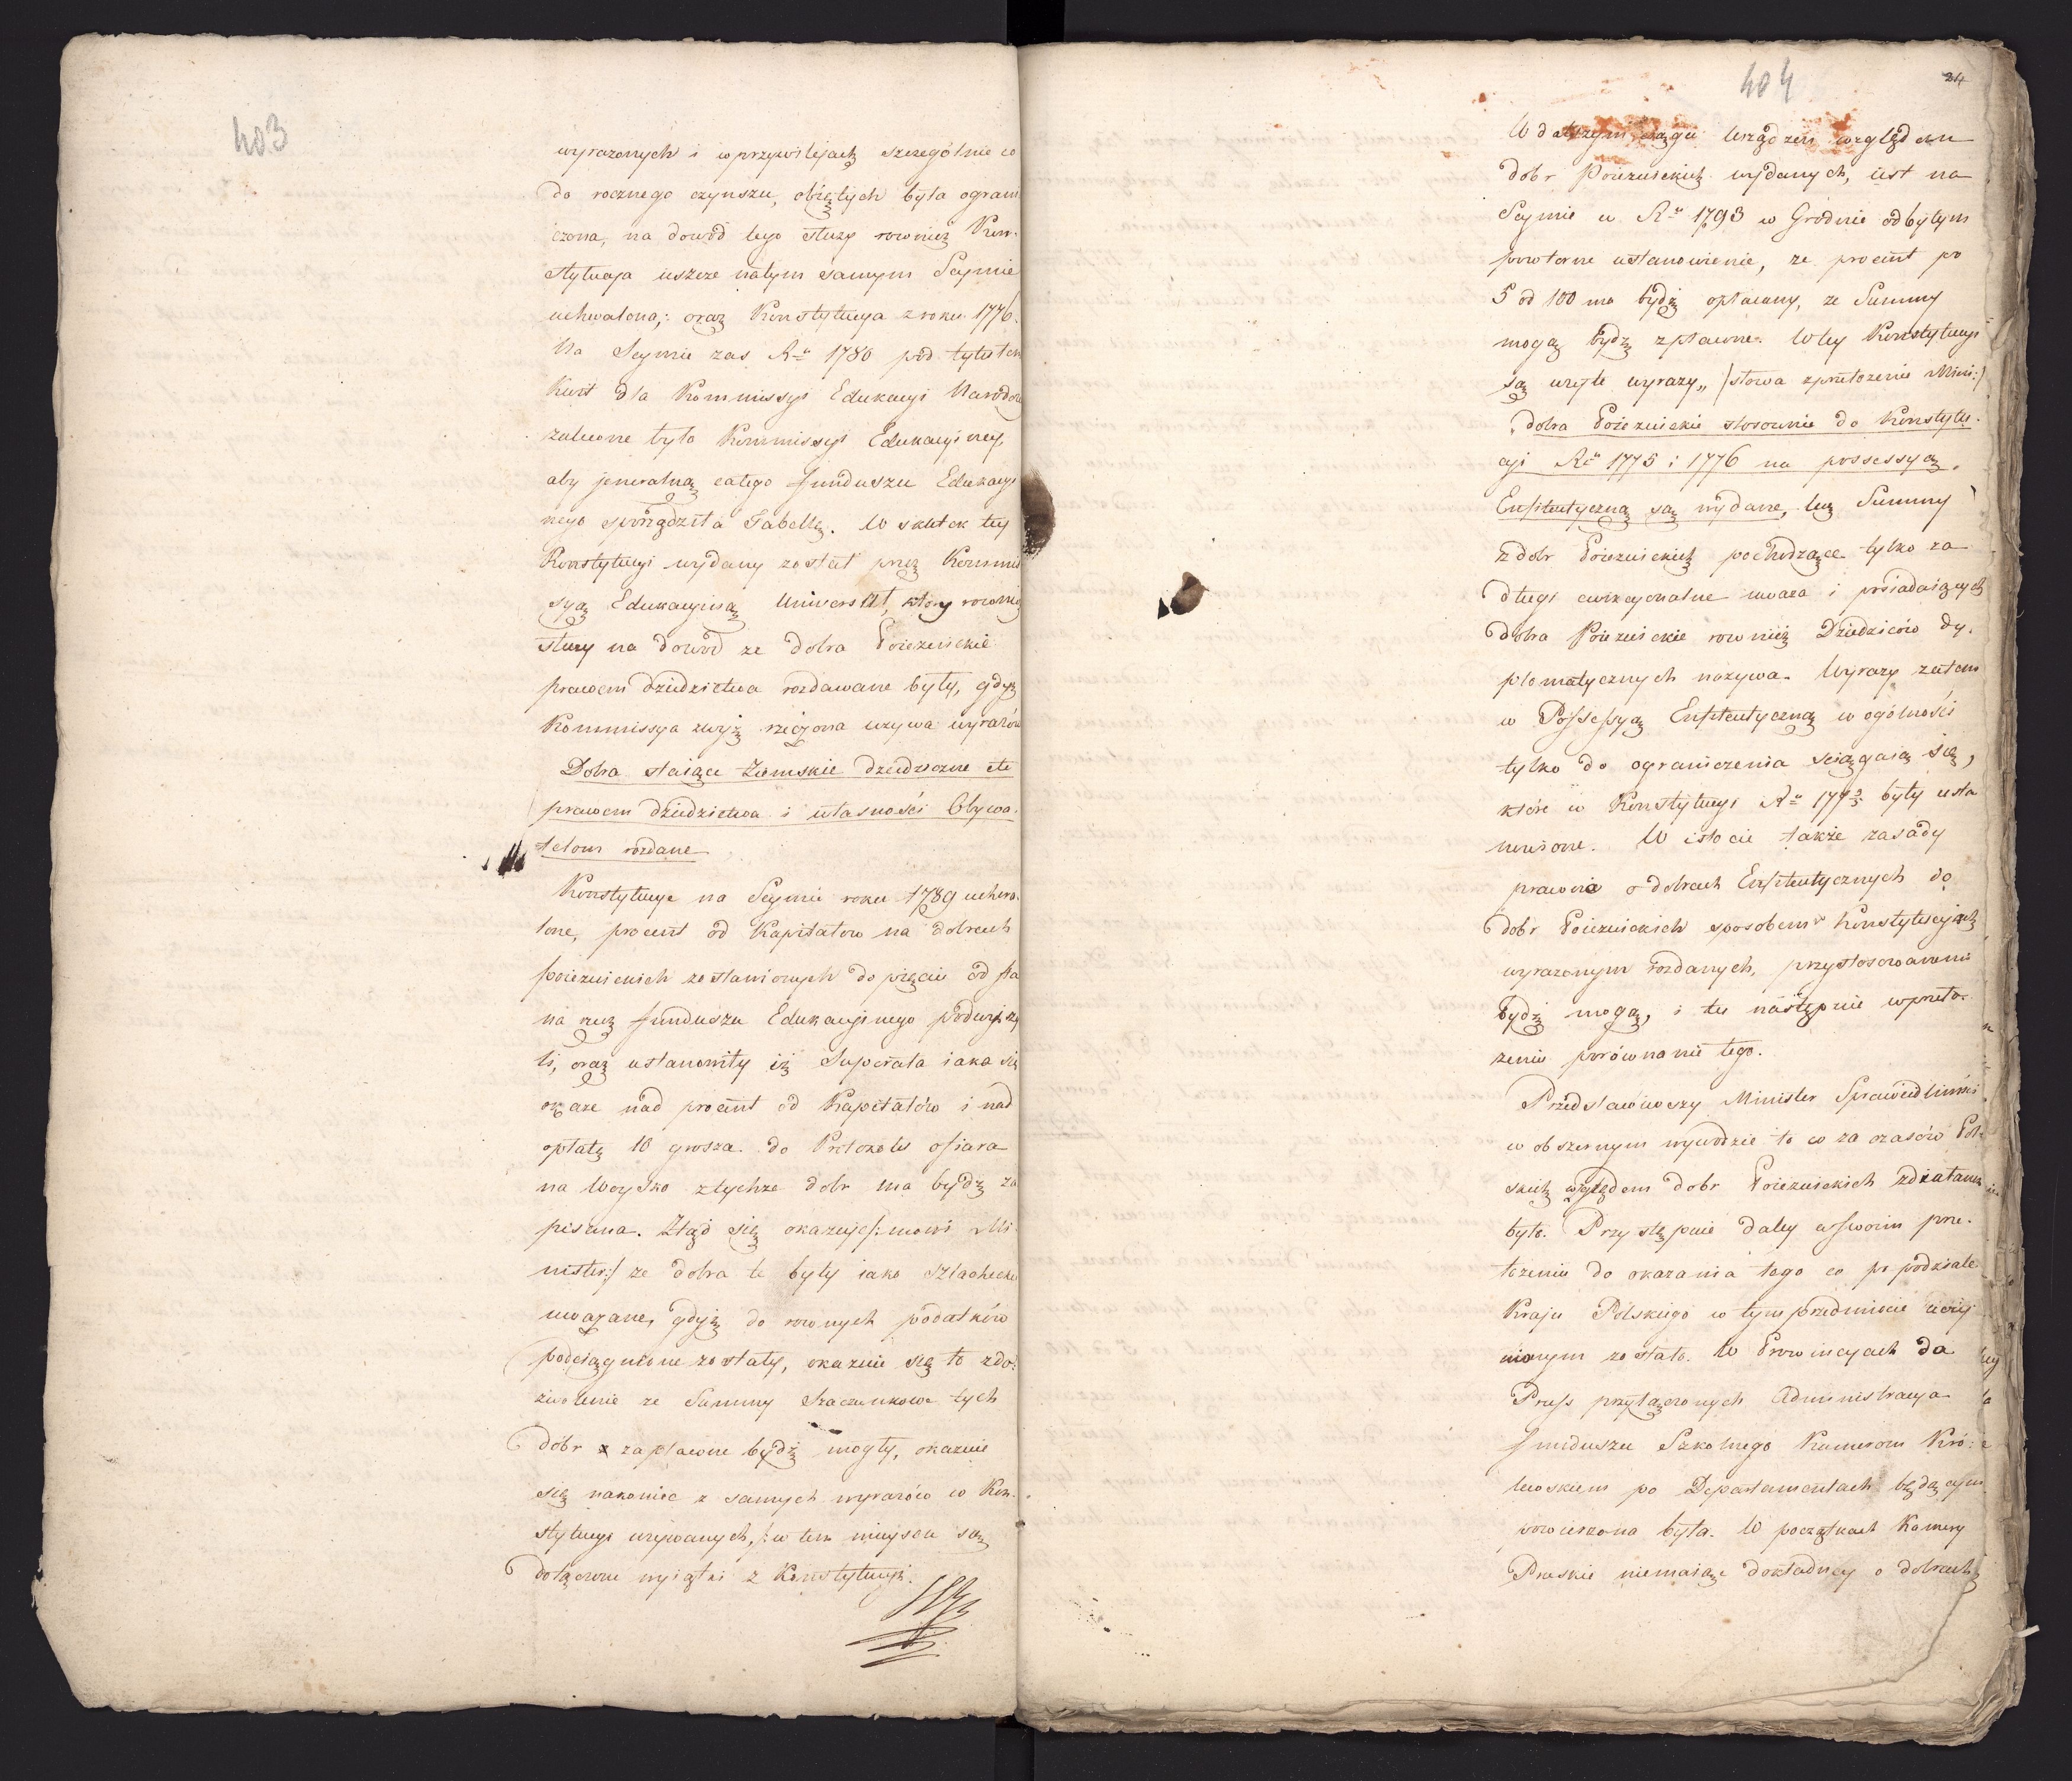 403
wyrazonych i w przywilejach szczególnie co
do rocznego czynszu, obiętych była ograni
czona, na dowód tego służy rownież Kon-
stytucya ieszcze na tym samym Seymie
uchwalona,: oraz Konstytucya z roku 1776.
Na Seymie zas Rº 1780 pod tytułem
Kwit dla Kommissyi Edukacyi Narodow
zalecone było Kommissyi Edukacyiney,
aby jeneralną całego funduszu Edukacyi
nego sporządziła Tabellę. W skutek tey
Konstytucyi wydany został przez Kommis
syą Edukacyiną Uniwersał, ktory rowniez
służy na dowód ze dobra Poiezuickie
prawem dziedzictwa rozdawane były, gdyz
Kommissya zwyż rzeczona uzywa wyrazów
Dobra staiące Ziemskie dziedziczne etc
prawem dziedzictwa i własności Obywa-
telom rozdane
Konstytucye na Seymie roku 1789 uchwa-
lone, procent od Kapitałow na dobrach
poiezuickich zostawionych do pięciu od sta
na rzecz funduszu Edukacyinego podwyższy
li, oraz ustanowiły iż Superata iaka się
okaze nad procent od Kapitałów i nad
opłatę 10 grosza do Protokołu ofiara
na Woysko z tychze dobr ma bydź za
pisana. Ztąd się okazuje /:mowi Mi-
nister:/ ze dobra te były iako szlacheckie
uwazane, gdyż do rownych podatków
podciągnione zostały, okazuie się to zdo:
zwolenie ze Summy Szacunkowe tych
dóbr zapłacone bydź mogły, okazuie
się nakoniec z samych wyrazów w Kon-
stytucyi uzywanych, /:w tem mieyscu są
dołączone wyiątki z Konstytucyi.
404
24
W dalszym ciągu Urządzen względem
dobr Poiezuickich wydanych, iest na
Seymie w Rº 1793 w Grodnie odbytym
powtorne ustanowienie, ze procent po
5 od 100 ma bydź opłacany, ze Summy
mogą bydź zpłacone. W tey Konstytucyi
są uzyte wyrazy „ /słowa z przełozenia Mini:/
dobra Poiezuickie stosownie do Konstytu-
cyi Rº 1775 i 1776 na possessyą
Emfiteutyczną są wydane, lecz Summy
z dobr Poiezuickich pochodzące tylko za
długi ewikcyonalne uwaza i posiadaiących
dobra Poiezuickie rownież Dziedziców dy-
plomatycznych nazywa. Wyrazy zatem
w Possessyą Emfiteutyczną w ogólności
tylko do ograniczenia sciągaią się,
które w Konstytucyi Rº 177 3/5 były usta
nowione. W istocie także zasady
prawne o dobrach Emfiteutycznych do
dobr Poiezuickich sposobem w Konstytucyiach
wyrazonym rozdanych, przystosowanemi
bydź mogą, i tu następuie w przeło-
zeniu porównanie tego.
Przedstawiwszy Minister Sprawiedliwości
w obszernym wywodzie to co za czasów Pol-
skich względem dobr Poiezuickich zdziałanem
było. Przystępuie daley w swoim prze-
łozeniu do okazania tego co po podziale
Kraju Polskiego w tym przedmiocie uczy
nionym zostało. W Prowincyach do
Pruss przyłączonych Administracya
funduszu Szkolnego Kamerom Kró:
lewskiem po Departamentach będącym
powierzona była. W początkach Kamery
Pruskie niemaiąc dokładney o dobrach